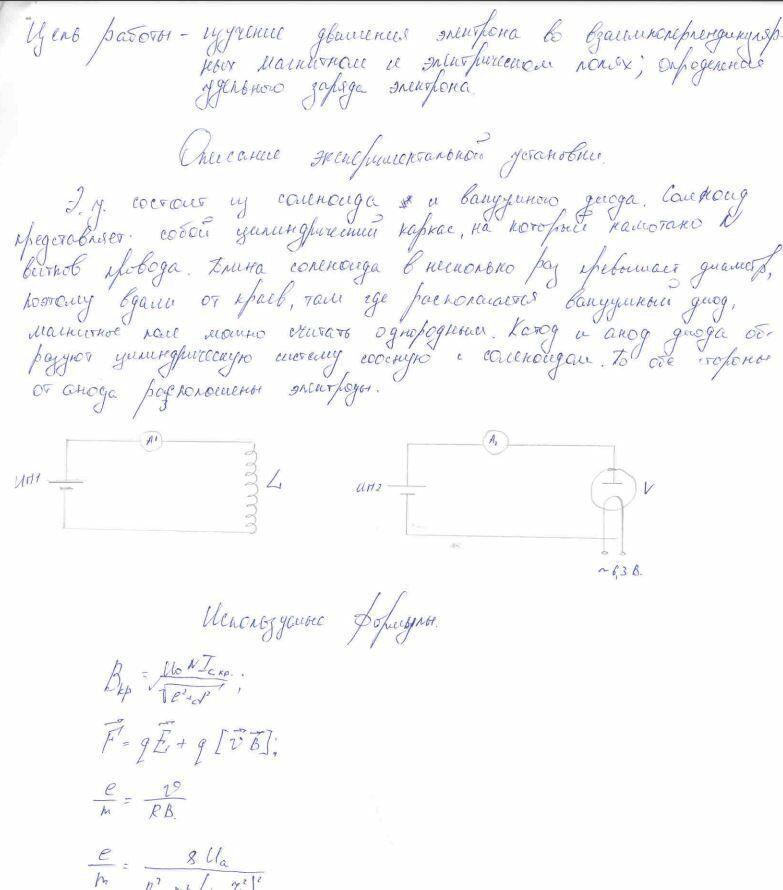 Цель работы - изучение движения электрона во взаимноперпендикуляр-
ных магнитном и электрическом полях; определение
удельного заряда электрона.
Описание экспериментальной установки.
Э.у. состоит из соленоида и вакуумного диода. Соленоид
представляет собой цилиндрический каркас, на который намотано N
витков провода. Длина соленоида в несколько раз превышает диаметр,
поэтому вдали от краев, там где располагается вакуумный диод,
магнитное поле можно считать однородным. Катод и анод диода об-
разуют цилиндрическую систему соосную с соленоидом. По обе стороны
от анода расположены электроды.
A1
ИП1
L
A2
ИП2
V
~6,3 В.
Используемые формулы.
Bкр = μ0 N Iс кр. / √(l²+d²) ;
F = qE + q [v B];
e/m = v / RB.
e/m = 8 Ua